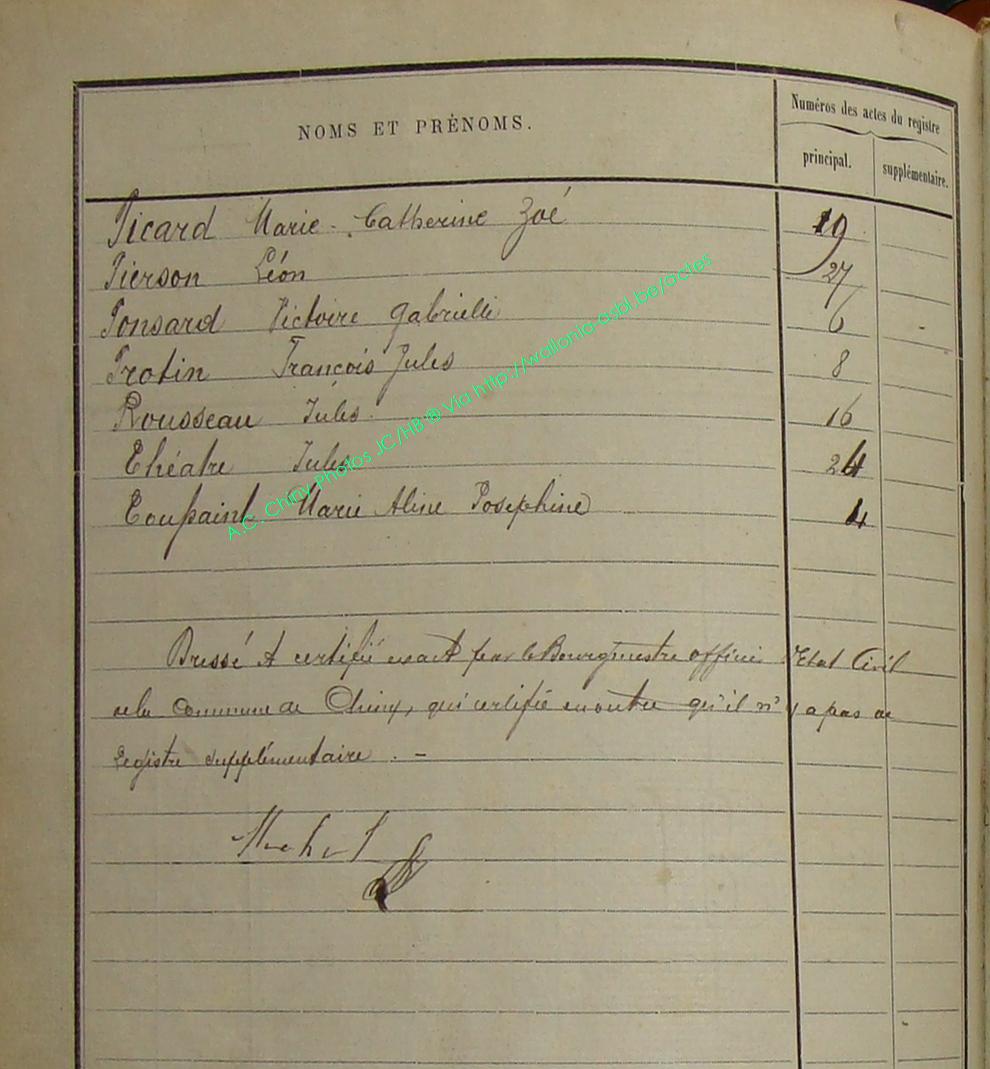 NOMS ET PRÉNOMS.
Numéros des actes du registre
principal.
supplémentaire.
Picard Marie-Catherine Zoé 19
Pierson Léon 27
Ponsard Victoire Gabrielle 6
Protin François Jules 8
Rousseau Jules 16
Théatre Jules 24
Toussaint Marie Aline Joséphine 4
Dressé et certifié exact par le Bourgmestre officier d'Etat Civil
de la Commune de Chiny, qui certifie en outre qu'il n'y a pas de
Registre supplémentaire. -
A.C. Chiny Photos JC/HB ® Via http://wallonia-asbl.be/actes